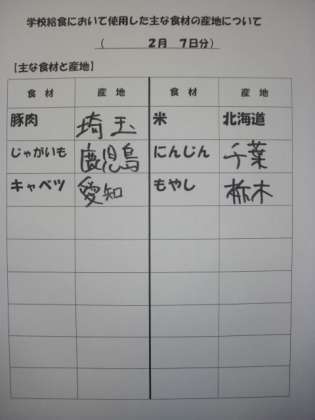 学校給食において使用した主な食材の産地について
( 2月 7日分)
【主な食材と産地】
食 材 産 地 食 材 産 地
豚肉 埼玉 米 北海道
じゃがいも 鹿児島 にんじん 千葉
キャベツ 愛知 もやし 栃木